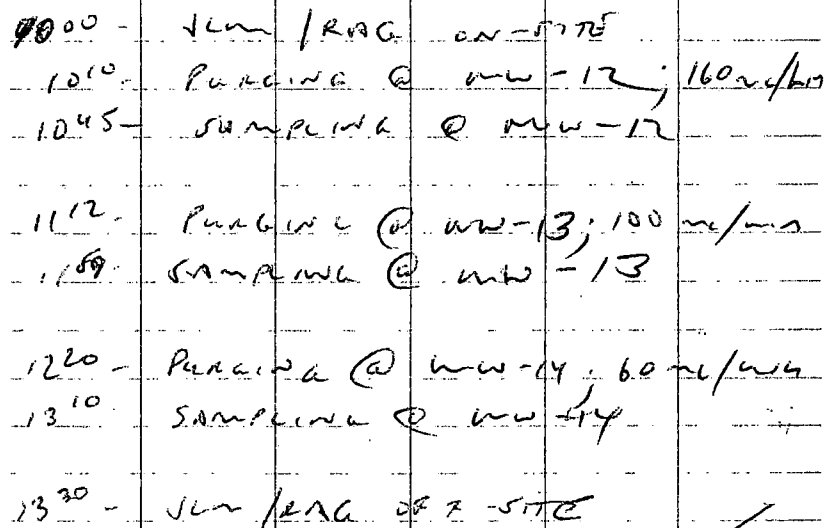 1000 - JLM / RAG ON-SITE
1010 - PURGING @ MW-12; 160 mL/min
1045 - SAMPLING @ MW-12
1112 - PURGING @ MW-13; 100 mL/min
1159 - SAMPLING @ MW-13
1220 - PURGING @ MW-14; 60 mL/min
1310 SAMPLING @ MW-14
1330 - JLM / RAG OFF-SITE